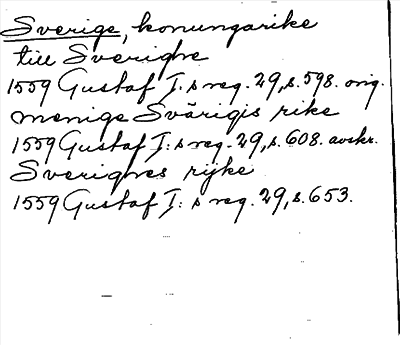 Sverige, konungarike
till Sverighe
1559 Gustaf I:s reg. 29, s. 598. orig.
menige Svärigis rike
1559 Gustaf I:s reg. 29, s. 608. avskr.
Sverighes rijke
1559 Gustaf I:s reg. 29, s. 653.